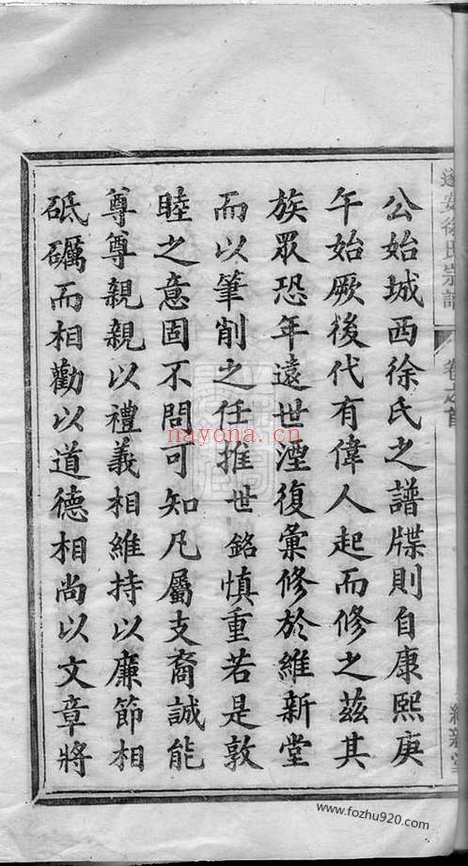 遂安徐氏宗譜
卷之首
公始城西徐氏之譜牒則自康熙庚
午始厥後代有偉人起而修之茲其
族眾恐年遠世湮復彙修於維新堂
而以筆削之任推世銘慎重若是敦
睦之意固不問可知凡屬支裔誠能
尊尊親親以禮義相維持以廉節相
砥礪而相勸以道德相尚以文章將
nayona.cn
www.fozhu920.com